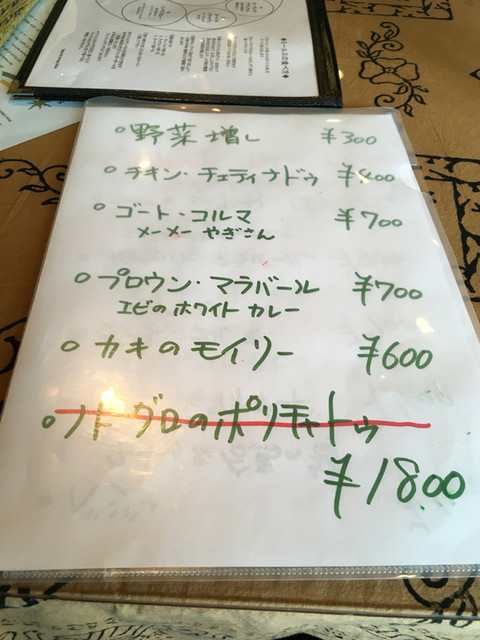 ◆ミールスの食べ方◆
○野菜増し ¥300
○チキン・チェティナドゥ ¥400
○ゴート・コルマ ¥700
メーメー やぎさん
○プロウン・マラバール ¥700
エビのホワイトカレー
○カキのモイリー ¥600
○ノドグロのポリチャトゥ
¥1800